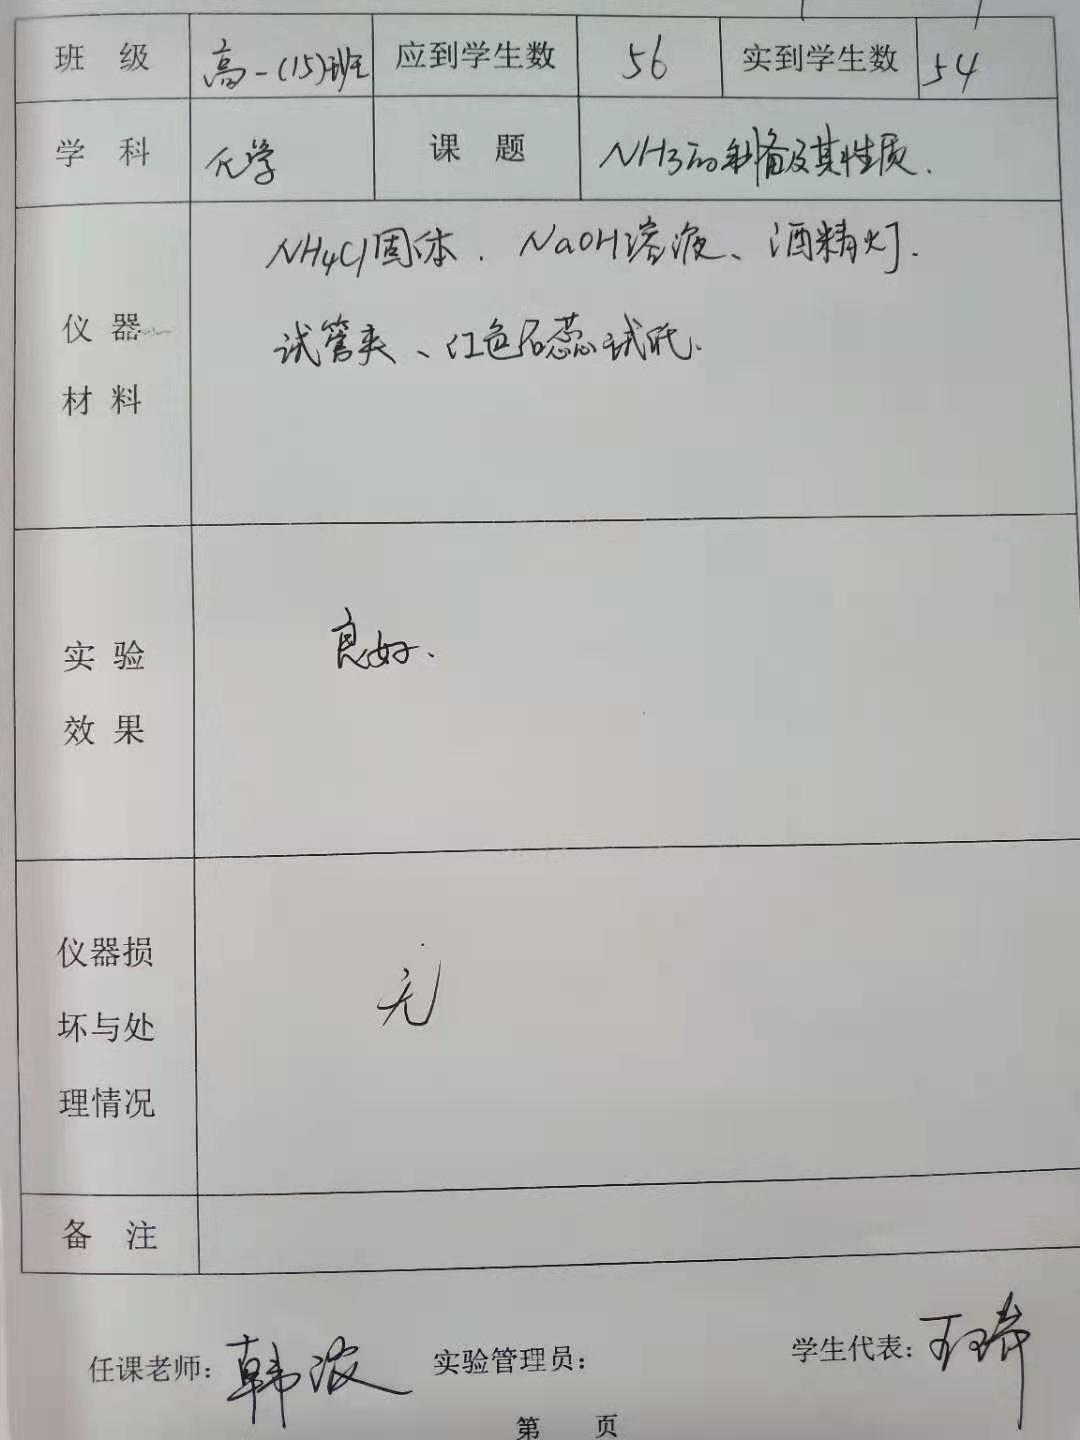 班 级 高一(15)班 应到学生数 56 实到学生数 54
学 科 化学 课 题 NH3的制备及其性质.
仪 器 材 料
NH4Cl固体. NaOH溶液、酒精灯.
试管夹、红色石蕊试纸.
实 验 效 果
良好.
仪器损
坏与处
理情况
无
备 注
任课老师: 韩波 实验管理员: 学生代表:
第 页